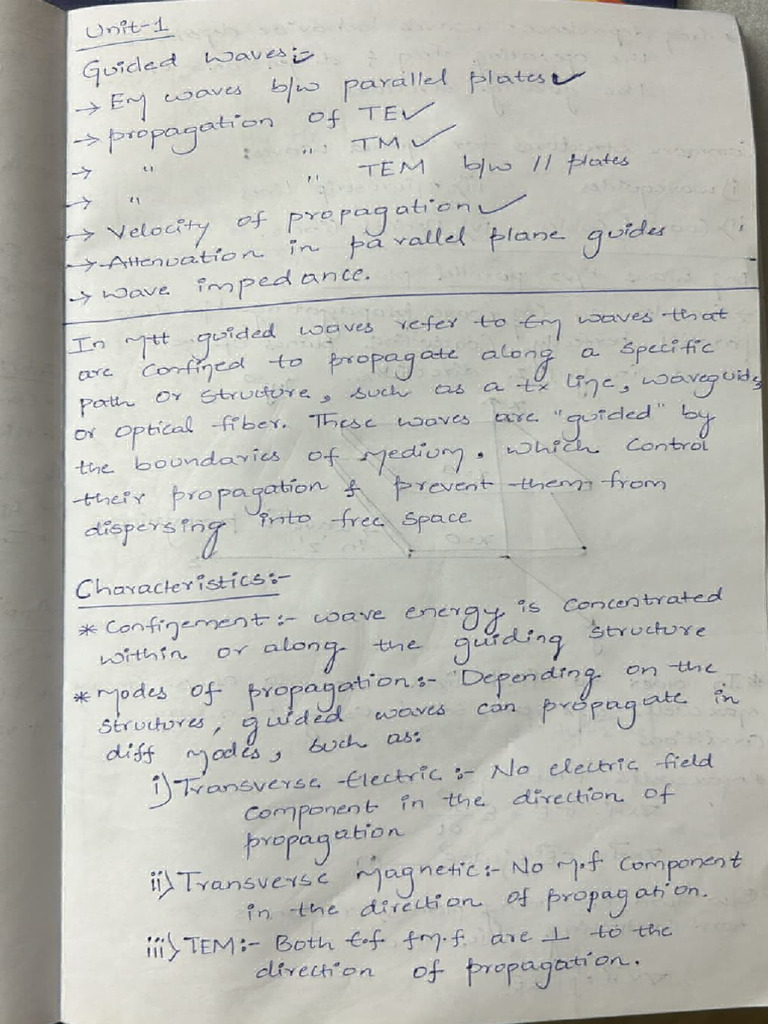 Unit-1
Guided waves:-
→ EM waves b/w parallel plates ✓
→ propagation of TE ✓
→ " " TM ✓
→ " " TEM b/w // plates
→ Velocity of propagation ✓
→ Attenuation in parallel plane guides
→ wave impedance.
In Mtt guided waves refer to EM waves that
are confined to propagate along a specific
path or structure, such as a tx line, waveguide
or optical fiber. These waves are "guided" by
the boundaries of medium. which control
their propagation & prevent them from
dispersing into free space
Characteristics:-
* Confinement:- wave energy is concentrated
within or along the guiding structure
* Modes of propagation:- Depending on the
structures, guided waves can propagate in
diff Modes, such as:
i) Transverse Electric:- No electric field
component in the direction of
propagation
ii) Transverse Magnetic:- No M.f component
in the direction of propagation.
iii) TEM:- Both E.f & M.f. are ⊥ to the
direction of propagation.